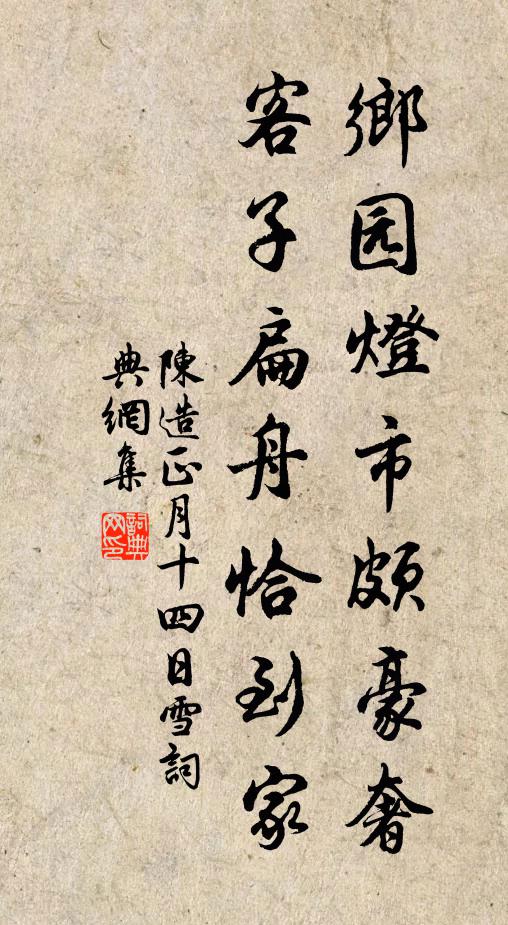 鄉园燈市頗豪奢
客子扁舟恰到家
陳造正月十四日雪詞
典網集
詞典
网印